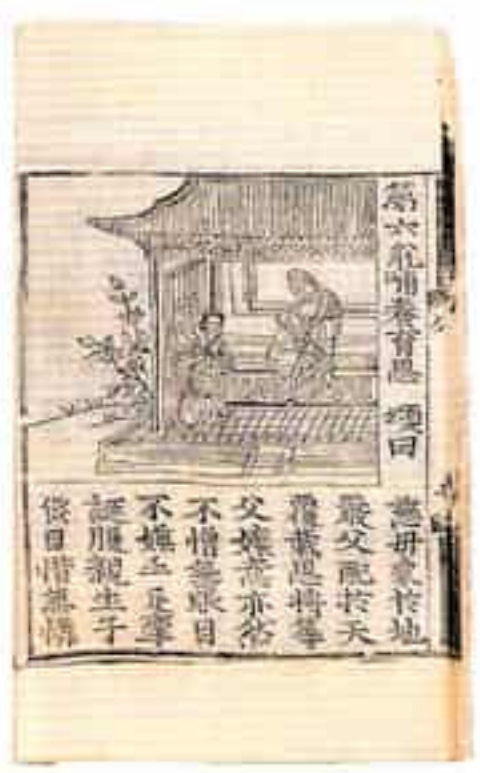 第六乳哺養育恩 頌曰
慈母象於地
嚴父配於天
覆載恩將等
父孃意亦然
不憎無眼目
不嫌手足攣
誕腹親生子
終日惜兼憐